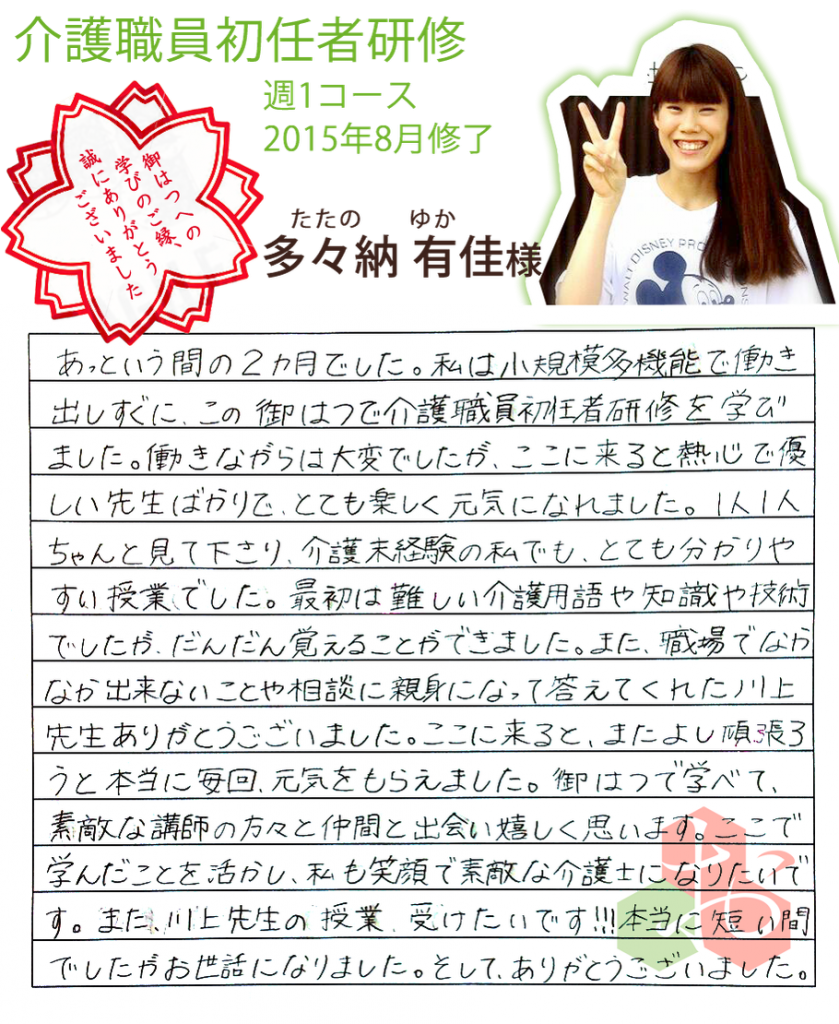 介護職員初任者研修
週1コース
2015年8月修了
御はつへの
学びのご縁、
誠にありがとう
ございました
たたの ゆか
多々納 有佳様
WALT DISNEY PRO
あっという間の2カ月でした。私は小規模多機能で働き
出しすぐに、この御はつで介護職員初任者研修を学び
ました。働きながらは大変でしたが、ここに来ると熱心で優
しい先生ばかりで、とても楽しく元気になれました。1人1人
ちゃんと見て下さり、介護未経験の私でも、とても分かりや
すい授業でした。最初は難しい介護用語や知識や技術
でしたが、だんだん覚えることができました。また、職場でなか
なか出来ないことや相談に親身になって答えてくれた川上
先生ありがとうございました。ここに来ると、またよし頑張ろ
うと本当に毎回、元気をもらえました。御はつで学べて、
素敵な講師の方々と仲間と出会い嬉しく思います。ここで
学んだことを活かし、私も笑顔で素敵な介護士になりたいで
す。また、川上先生の授業、受けたいです!!!本当に短い間
でしたがお世話になりました。そして、ありがとうございました。